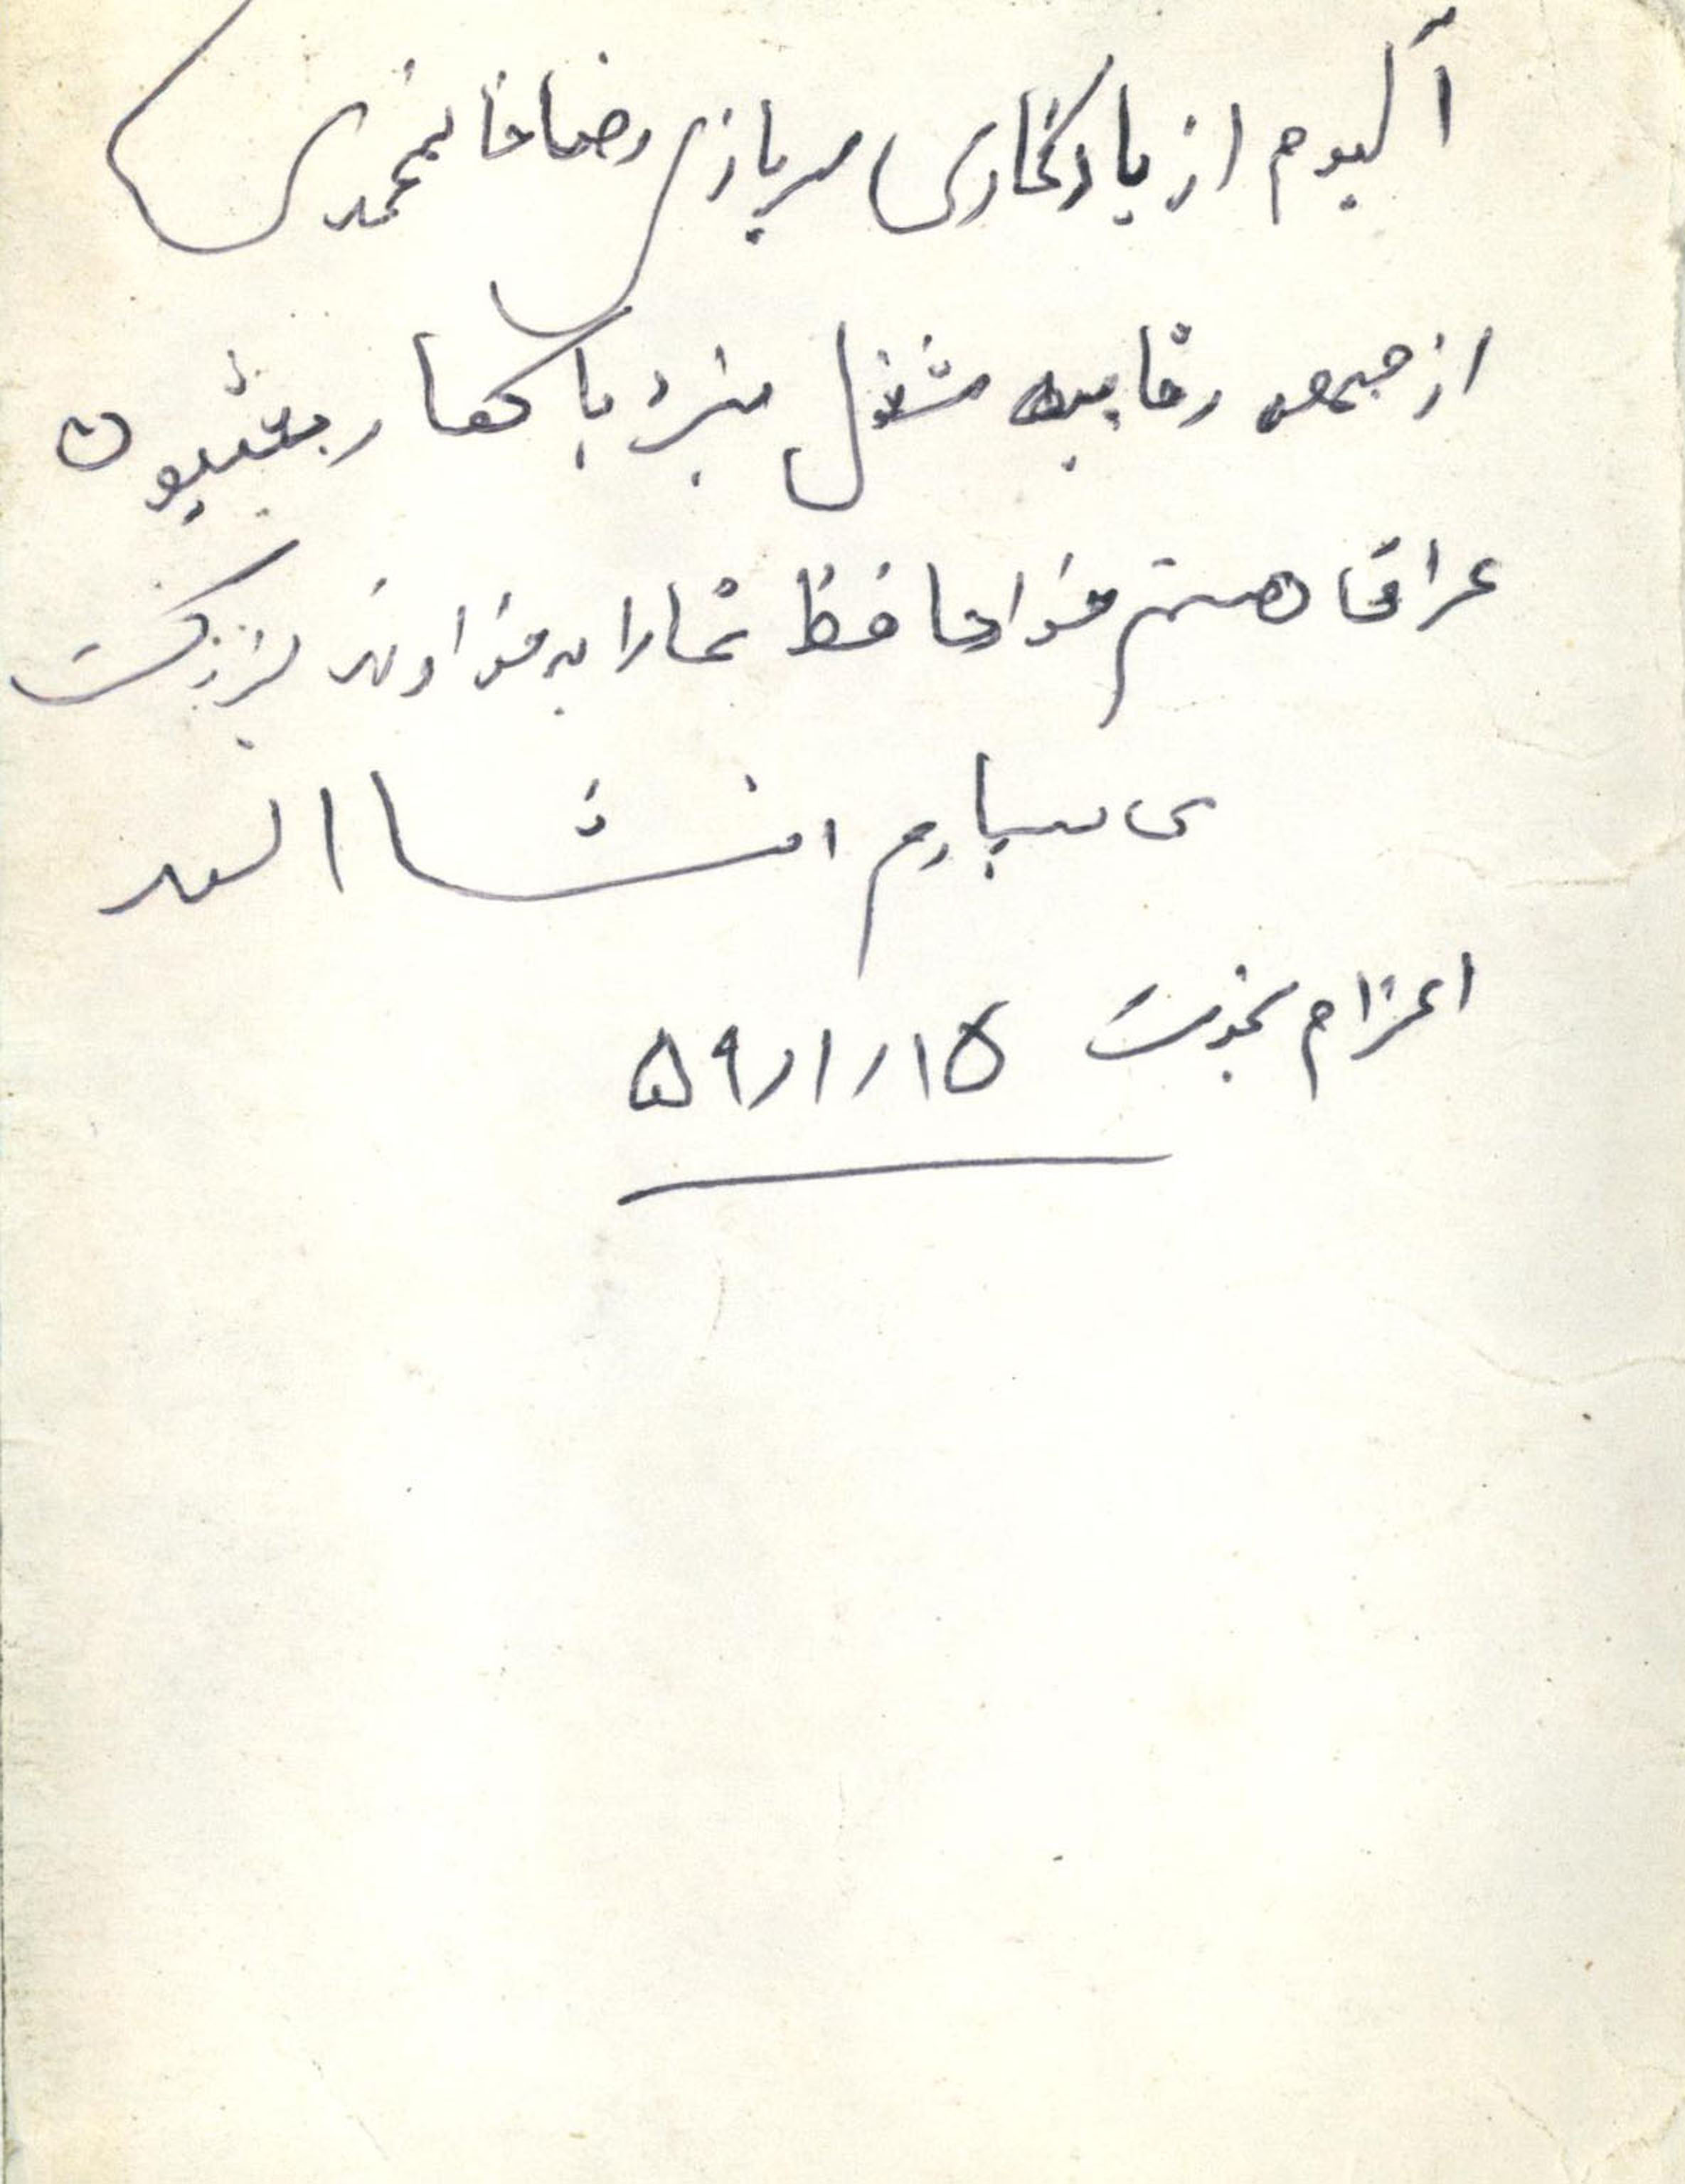 آلبوم از یادگاری سربازی رضا خانمحمدی
از جبهه رقابیه مشغل نبرد با کفار بعثیون
عراقا هستم خداحافظ شما را به خداوند بزرگ
می سپارم انشا الله
اعزام بخدمت ۱۵/۱/۵۹